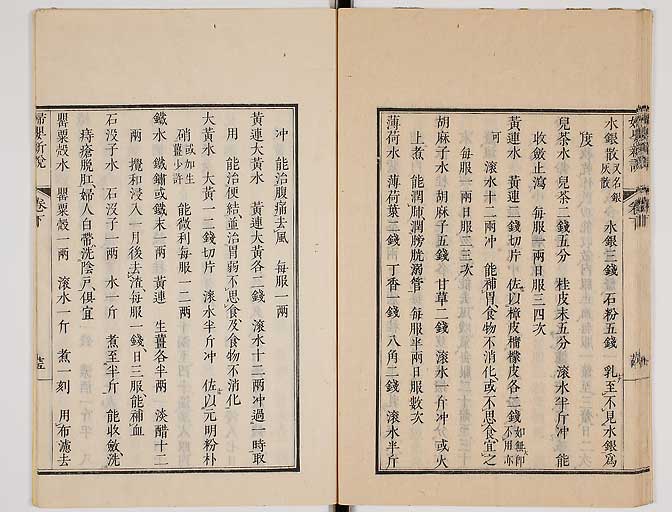 水銀散 又名銀灰散 水銀三錢 石粉五錢 乳至不見水銀爲
度
兒茶水 兒茶二錢五分 桂皮末五分 滾水半斤冲 能
收斂止瀉 每服一兩日服三四次
黃連水 黃連二錢切片 佐以樟皮檸檬皮各二錢 如無卽不用亦
可 滾水十二兩冲 能補胃食物不消化或不思食宜之
每服一兩日服二三次
胡麻子水 胡麻子五錢 甘草二錢 滾水一斤冲 或火
上煮 能潤肺潤膀胱溺管 每服半兩日服數次
薄荷水 薄荷葉二錢 丁香一錢 八角二錢 滾水半斤
冲 能治腹痛去風 每服一兩
黃連大黃水 黃連大黃各二錢 滾水十二兩冲過一時取
用 能治便結並治胃弱不思食及食物不消化
大黃水 大黃一二錢切片 滾水半斤冲 佐以元明粉朴
硝 或加生薑少許 能微利每服一二兩
鐵水 鐵鏽或鐵末一兩 黃連 生薑各半兩 淡醋十二
兩 攪和浸入一月後去渣每服一錢日三服能補血
石沒子水 石沒子一兩 水一斤 煮至半斤 能收斂洗
痔瘡脫肛婦人白帶洗陰戶俱宜
罌粟殼水 罌粟殼一兩 滾水一斤 煮一刻 用布濾去
婦嬰新說
卷下